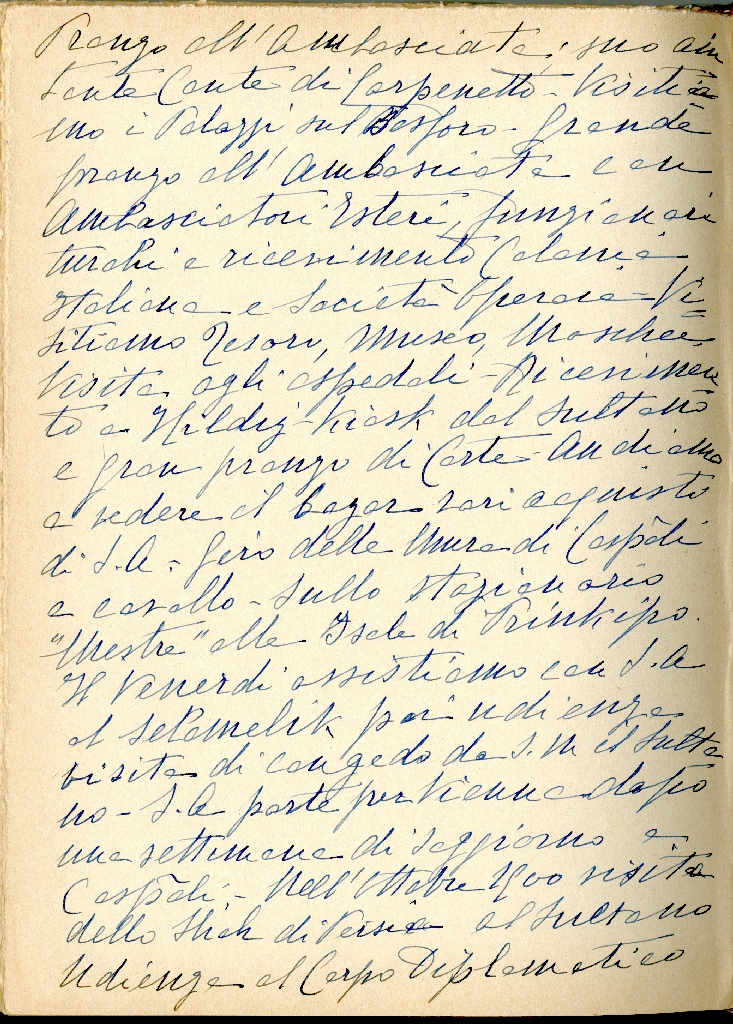 Pranzo all'Ambasciata; suo aiu
tante Conte di Carpenetto - Visitia
mo i Palazzi sul Bosforo - Grande
pranzo all'Ambasciata con
Ambasciatori Esteri, funzionari
turchi e ricevimento Colonia
Italiana e Società Operaia - Vi=
sitiamo Tesoro, Museo, Moschee,
Visita agli ospedali - Ricevimen
to a Hildiz-Kiosk dal Sultano
e gran pranzo di Corte - Andiamo
a vedere il bazar vari acquisti
di S.A. - Giro delle Mura di Cospoli
a cavallo - Sullo stazionario
"Mestre" alle Isole di Prinkipo.
Il Venerdi assistiamo con S.A
al Selamelik poi udienza
visita di congedo da S.M il Sulta
no - S.A parte per Vienna dopo
una settimana di soggiorno a
Cospoli - Nell'Ottobre 1900 visita
dello Shah di Persia al Sultano
Udienza al Corpo Diplomatico